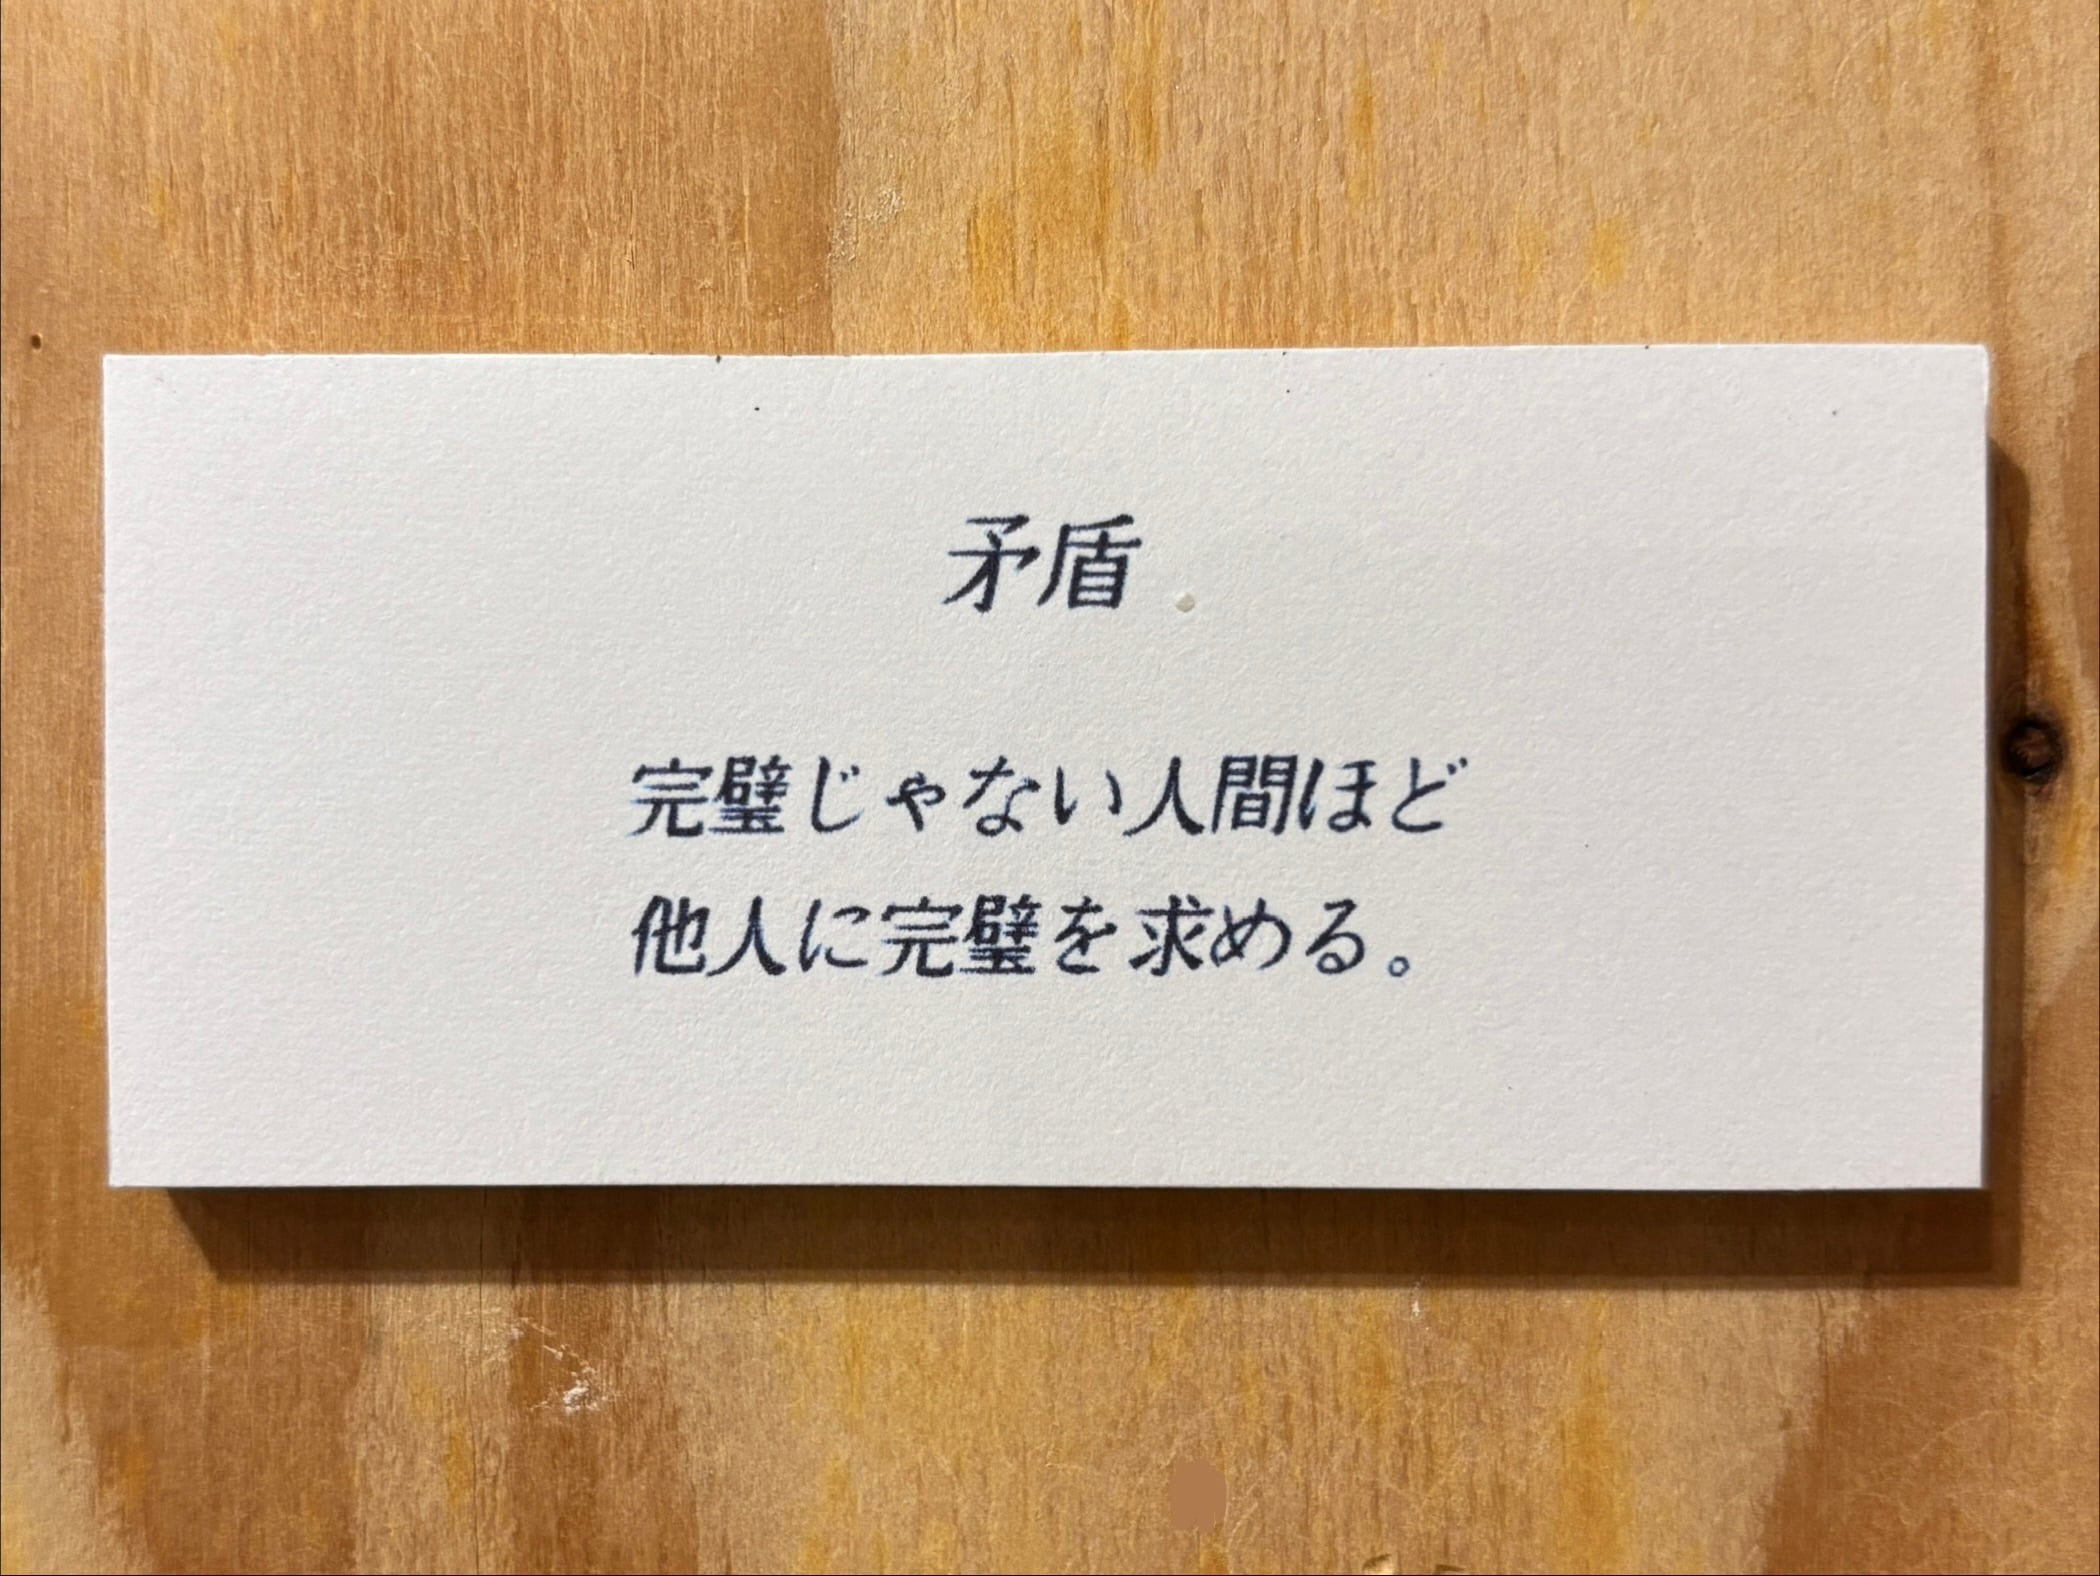 矛盾
完璧じゃない人間ほど
他人に完璧を求める。